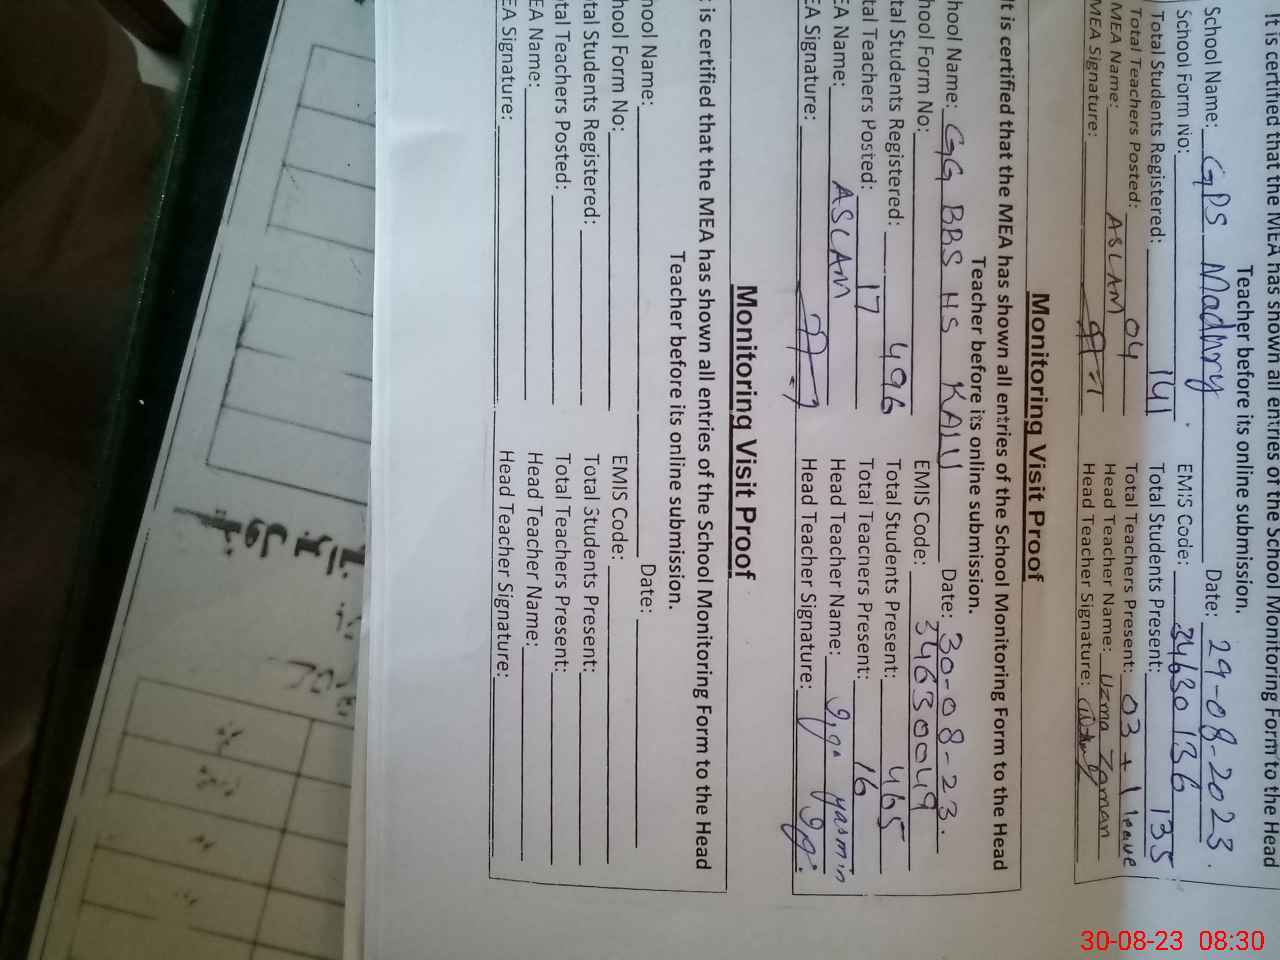 It is certified that the MEA has shown all entries of the School Monitoring Form to the Head
Teacher before its online submission.
School Name: GPS Madhry Date: 29-08-2023.
School Form No: EMIS Code: 34630136
Total Students Registered: 141 Total Students Present: 135
Total Teachers Posted: 04 Total Teachers Present: 03 + 1 leave
MEA Name: ASLAM Head Teacher Name: Uzma Zaman
MEA Signature: Head Teacher Signature:
Monitoring Visit Proof
It is certified that the MEA has shown all entries of the School Monitoring Form to the Head
Teacher before its online submission.
hool Name: GG BBS HS KALU Date: 30-08-23.
hool Form No: EMIS Code: 34630049
tal Students Registered: 496 Total Students Present: 465
tal Teachers Posted: 17 Total Teachers Present: 16
EA Name: ASLAM Head Teacher Name: yasmin
EA Signature: Head Teacher Signature:
Monitoring Visit Proof
t is certified that the MEA has shown all entries of the School Monitoring Form to the Head
Teacher before its online submission.
hool Name: Date:
hool Form No: EMIS Code:
tal Students Registered: Total Students Present:
tal Teachers Posted: Total Teachers Present:
EA Name: Head Teacher Name:
EA Signature: Head Teacher Signature:
30-08-23 08:30